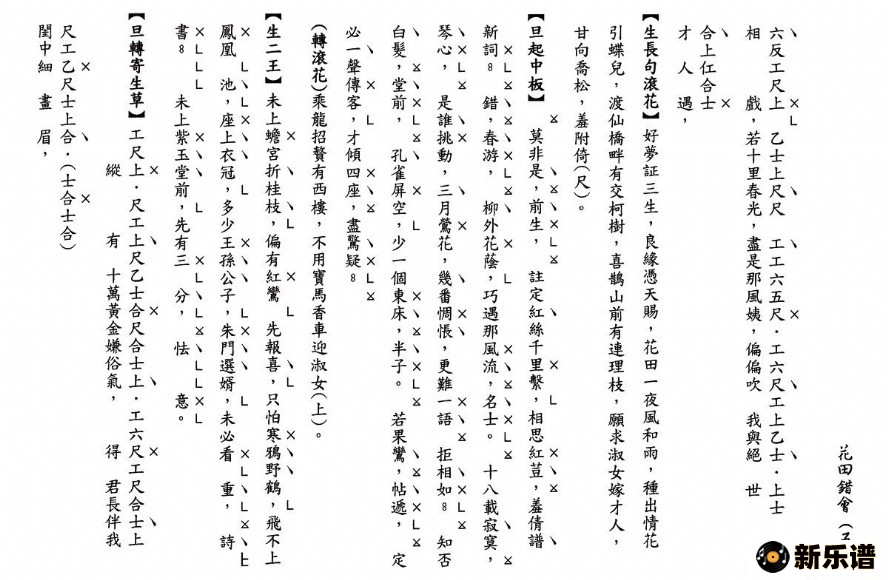 花田錯會（工
六反工尺上 乙士上尺尺 工工六五尺．工六尺工上乙士．上士
相 戲，若十里春光，盡是那風姨，偏偏吹 我與絕 世
合上仜合士
才 人 遇，
【生長句滾花】好夢証三生，良緣憑天賜，花田一夜風和雨，種出情花
引蝶兒，渡仙橋畔有交柯樹，喜鵲山前有連理枝，願求淑女嫁才人，
甘向喬松，羞附倚(尺)。
【旦起中板】 莫非是，前生， 註定紅絲千里繫，相思紅荳，羞倩譜
新詞。 錯，春游， 柳外花蔭，巧遇那風流，名士。 十八載寂寞，
琴心， 是誰挑動，三月鶯花，幾番惆悵，更難一語 拒相如。 知否
白髮，堂前， 孔雀屏空，少一個東床，半子。 若果鸞，帖遞， 定
必一聲傳客，才傾四座，盡驚疑。
(轉滾花)乘龍招贅有西樓，不用寶馬香車迎淑女(上)。
【生二王】未上蟾宮折桂枝，偏有紅鸞 先報喜，只怕寒鴉野鶴，飛不上
鳳凰 池，座上衣冠，多少王孫公子，朱門選婿，未必看 重， 詩
書。 未上紫玉堂前，先有三 分， 怯 意。
【旦轉寄生草】工尺上．尺工上尺乙士合尺合士上．工六尺工尺合士上
縱 有 十萬黃金嫌俗氣， 得 君長伴我
尺工乙尺士上合．(士合士合)
閨中細 畫 眉，
新乐谱